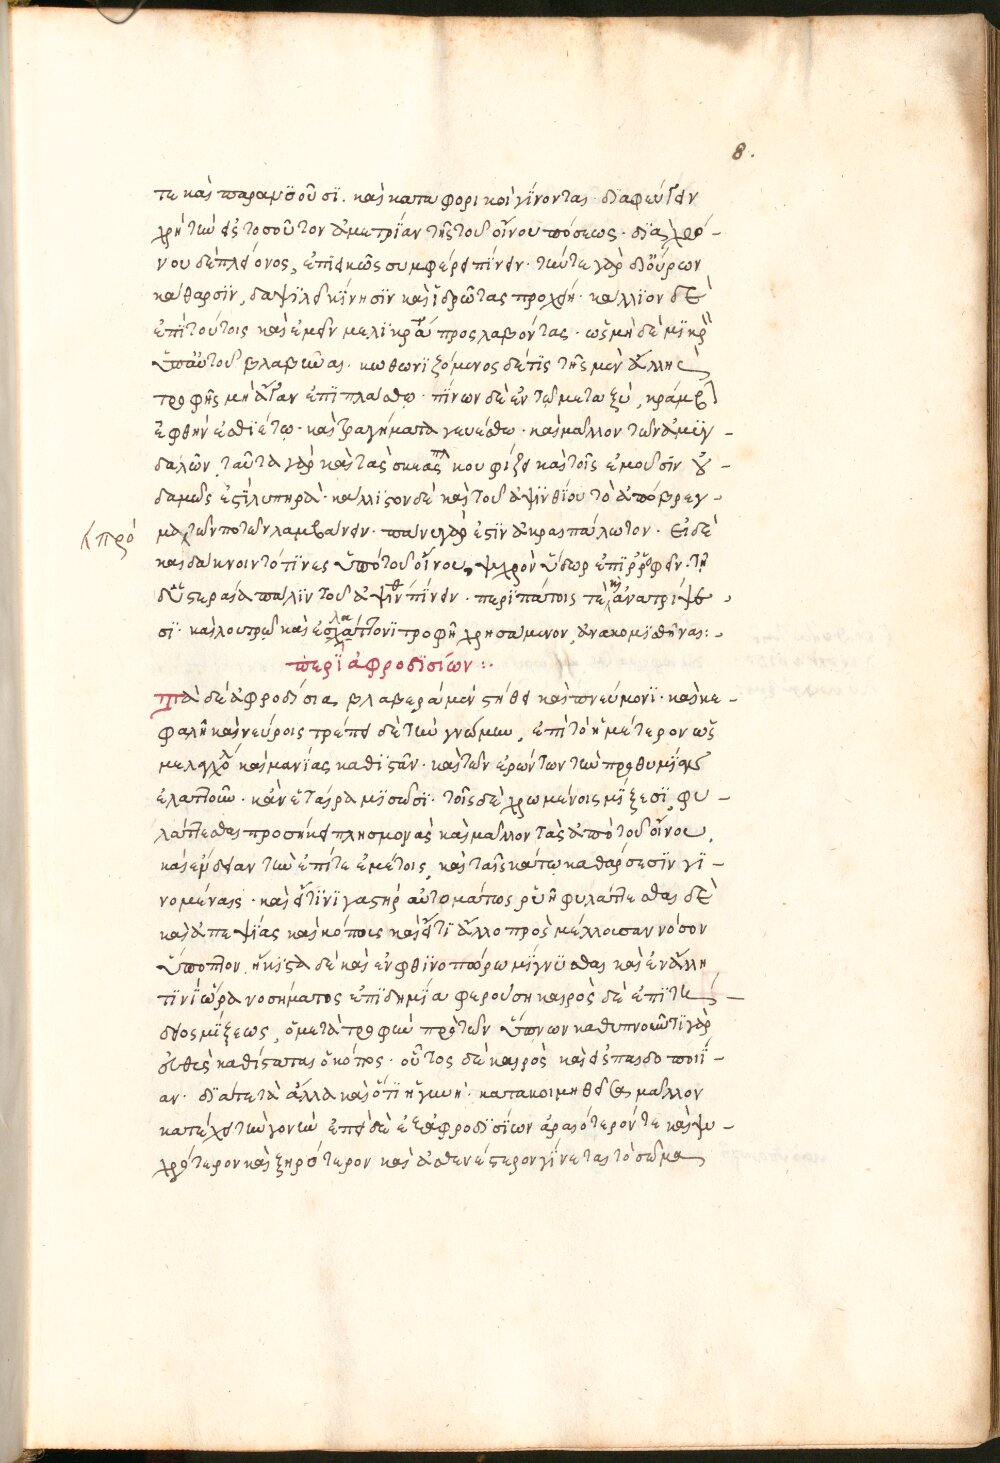 8.
τε καὶ παραμϋοῦσϊ. καὶ καταφορικοὶ γίνονται· διαφεύγειν
χρὴ τὴν εἰς τοσοῦτον ἀμετρίαν τῆς τοῦ οἴνου πόσεως· διὰ χρό-
νου δὲ πλείονος, ἐπιεικῶς συμφέρει πίνειν· τήν τε γὰρ δι' οὔρων
κάθαρσϊν, δαψιλεῖ κίνησϊν καὶ ἱδρῶτας προχέει· κάλλϊον δὲ
ἐπὶ τούτοις καὶ ἐμεῖν μελίκρατον προσλαβόντας· ὡς μηδὲ μϊκρὸν
ὑπ' αὐτοῦ βλαβῆναι· κωθωνϊζόμενος δέ τϊς τῆς μὲν ἄλλης
τροφῆς μὴ ἄγαν ἐπϊπλάσθω· πίνων δὲ ἐν τῷ μεταξὺ, κράμβην
ἐφθὴν ἐσθϊέτω· καὶ τραγήματα γευέσθω· καὶ μᾶλλον τῶν ἀμϋγ-
δαλῶν, ταῦτα γὰρ καὶ τὰς σκεας κουφίζει καὶ τοῖς ἐμοῦσϊν οὐ-
δαμῶς ἐστὶ λυπηρά· κάλλιστον δὲ καὶ τοῦ ἀψϊνθίου τὸ ἀπόβρεγ-
μα τῶν ποτῶν λαμβάνειν· πάνυ γὰρ ἐστὶν ἀκραιπάλωτον· εἰ δὲ
πρὸ
καὶ δάκνοιντό τϊνες ὑπὸ τοῦ οἴνου, ψυχρὸν ὕδωρ ἐπϊρροφεῖν· τῇ
δευτεραία πάλϊν τοῦ ἀψϊνθ πίνειν· περϊπάτοις τε καὶ ἀνατρίψε
σϊ· καὶ λουτρῷ καὶ ἐλάττονι τροφῇ χρησάμενον, ἀνακομϊσθῆναι:·
περὶ ἀφροδϊσίων:·
Τὰ δὲ ἀφροδίσια, βλαβερὰ μὲν στήθει καὶ πνεύμονϊ· καὶ κε-
φαλῇ καὶ νεύροις τρέπει δὲ τὴν γνώμην, ἐπὶ τὸ ἡμέτερον ὡς
μελαγχο καὶ μανίας καθϊστᾶν· καὶ τῶν ἐρώντων τὴν προθυμίαν
ἐλαττοῦν· κἂν ἑταίρα μϊσῶσϊ· τοῖς δὲ χρωμένοις μίξεσϊ, φυ-
λάττεσθαι προσήκει πλησμονὰς καὶ μᾶλλον τὰς ἀπὸ τοῦ οἴνου,
καὶ ἔνδειαν τὴν ἐπί τε ἐμέτοις, καὶ ταῖς κάτω καθάρσεσϊν γϊ-
νομέναις· καὶ εἴ τϊνϊ γαστὴρ αὐτομάτως ῥυῇ φυλάττεσθαι δὲ
καὶ ἀπεψίας καὶ κόπους καὶ εἴ τϊ ἄλλο πρὸς μέλλουσαν νόσον
ὕποπτον. ἥκϊστα δὲ καὶ ἐν φθϊνοπώρω μίγνϋσθαι καὶ ἐν ἄλλη
τϊνὶ ὥρα νοσήματος ἐπϊδημία φερούση καιρὸς δὲ ἐπϊτή-
δειος μίξεως, ὁ μετὰ τροφὴν πρὸ τῶν ὕπνων καθυπνοῦντϊ γὰρ
εὐθὺς καθίσταται ὁ κόπος· οὗτος δὲ καιρὸς καὶ εἰς παιδοποιΐ-
αν· δϊάτετα ἄλλα καὶ ὅτϊ ἡ γυνὴ· κατακοιμηθεῖσα μᾶλλον
κατέχει τὴν γονὴν ἐπεὶ δὲ ἐξ ἀφροδϊσίων ἀραιότερόν τε καὶ ψυ-
χρότερον καὶ ξηρότερον καὶ ἀσθενέστερον γίνεται τὸ σῶμα